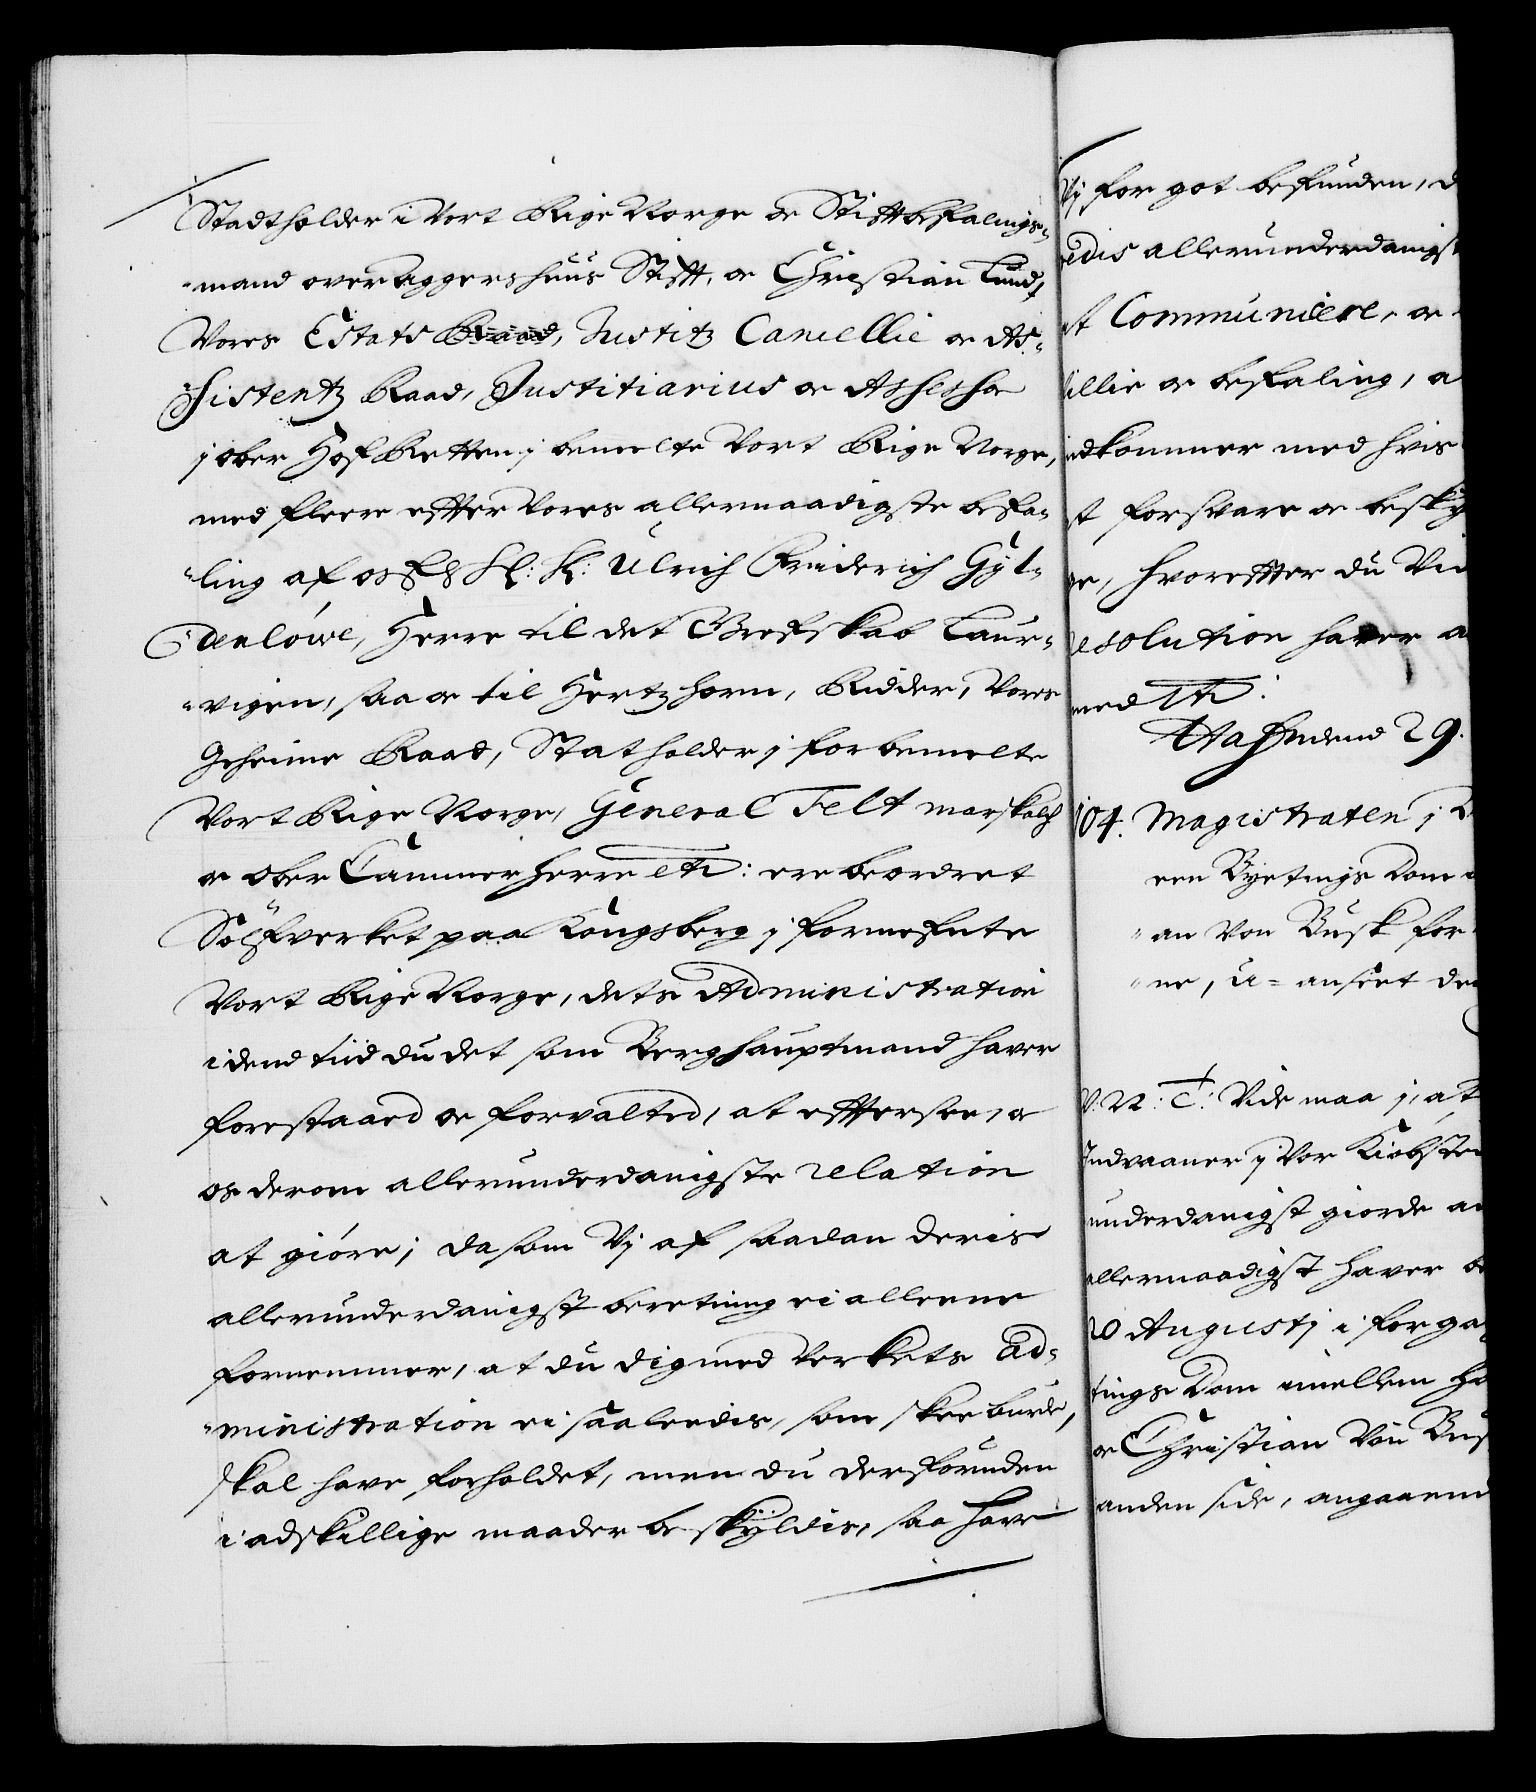 Stadtholder i Vort Rige Norge oc Stiftbefalings-
"mand over Aggershuus Stift, oc Christian Lund,
Vores Estats Raad, Justitz Cancellie oc As-
"sistentz Raad, Justitiarius oc Assessor
j ober Hof Retten j bemelte Vort Rige Norge,
med fleere effter Vores allernaadigste befa-
"ling af os Elsk: H: Ulrich Friderich Gyl-
"denlöwe, Herre til det Grefskab Laur-
"vigen, saa oc til Hertzhorn, Ridder, Vores
Geheime Raad, Statholder j forbemelte
Vort Rige Norge, General Felt marskalch
oc Ober Cammer Herre etc: ere beordret
Sölfverket paa Kongsberg j fornefnte
Vort Rige Norge, dets Administration
i dend tiid du det som Berghauptmand haver
forestaaed oc forvalted, at efftersee, oc
os derom allerunderdanigste relation
at giöre; da som Vj af saadan deris
allerunderdanigst beretning ei alleene
fornemmer, at du dig med Verkets ad-
"ministration ei saaledis, som skee burde,
skal have forholdet, men du derforuden
i adskillige maader beskyldis, saa have
Vj for got befunden, d
edis allerunderdanigst
st Communicere, oc
illie oc befaling, a
edkommer med hvis
st forsvare oc besky
ge, hvoreffter du Vid
esolution haver a
med etc:
Hafniæ d 29.
104. Magistraten j
een Byetings Dom
"an Von Busk for
"ne, u-anseet de
V: N: C: Vide maa j, at
Indvaaner j Vor Kiöbsted
underdanigst giorde an
allernaadigst haver be
20 Augustj i forga
tings Dom imellem H
oc Christian Von Bus
anden side, angaaend